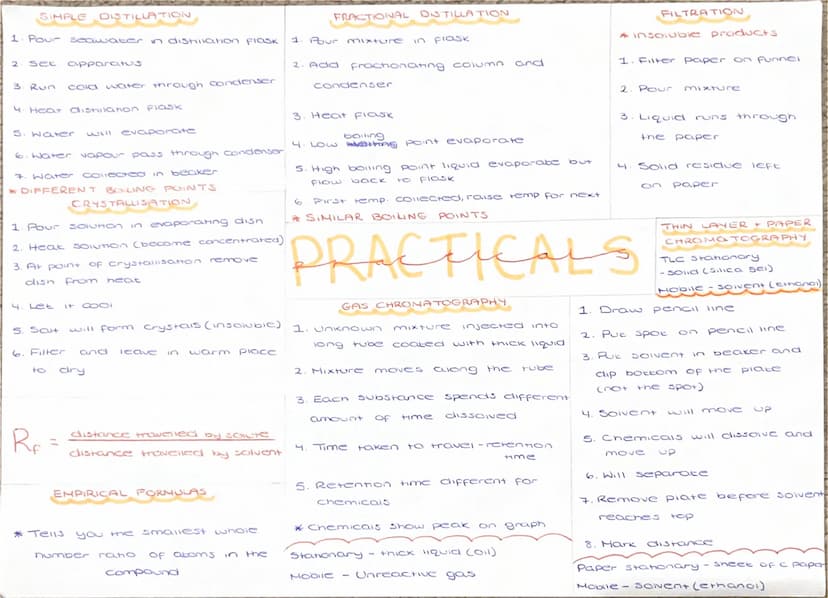 SIMPLE DISTILLATION
1. Pour seawater in distillation flask
2 Set apparatus
3. Run cold water through condenser
4. Heat distillation flask
5. Water will evaporate
6. Water vapour pass through condenser
7. Water collected in beaker
* DIFFERENT BOILING POINTS
CRYSTALLISATION
1. Pour solution in evaporating dish
2. Heat solution (become concentrated)
3. At point of crystallisation remove
dish from heat
4. Let it cool
5. Salt will form crystals (insoluble)
6. Filter and leave in warm place
to dry
Rf = distance travelled by solute
distance travelled by solvent
EMPIRICAL FORMULAS
* Tells you the smallest whole
number ratio of atoms in the
compound
FRACTIONAL DISTILLATION
1. Pour mixture in flask
2. Add fractionating column and
condenser
3. Heat flask
4. Low boiling point evaporate
5. High boiling point liquid evaporate but
flow back to flask
6 First temp. collected, raise temp for next
* SIMILAR BOILING POINTS
PRACTICALS
Practicals
GAS CHROMATOGRAPHY
1. Unknown mixture injected into
long tube coated with thick liquid
2. Mixture moves along the tube
3. Each substance spends different
amount of time dissolved
4. Time taken to travel - retention
time
5. Retention time different for
chemicals
* Chemicals show peak on graph
Stationary - thick liquid (oil)
Mobile - Unreactive gas
FILTRATION
* insoluble products
1. Filter paper on funnel
2. Pour mixture
3. Liquid runs through
the paper
4. Solid residue left
on paper
THIN LAYER + PAPER
CHROMOTOGRAPHY
TLC Stationary
- Solid (silica gel)
Mobile - solvent (ethanol)
1. Draw pencil line
2. Put spot on pencil line
3. Put solvent in beaker and
dip bottom of the plate
(not the spot)
4. Solvent will move up
5. Chemicals will dissolve and
move up
6. Will separate
7. Remove plate before solvent
reaches top
8. Mark distance
Paper stationary - sheet of c paper
Mobile - solvent (ethanol)